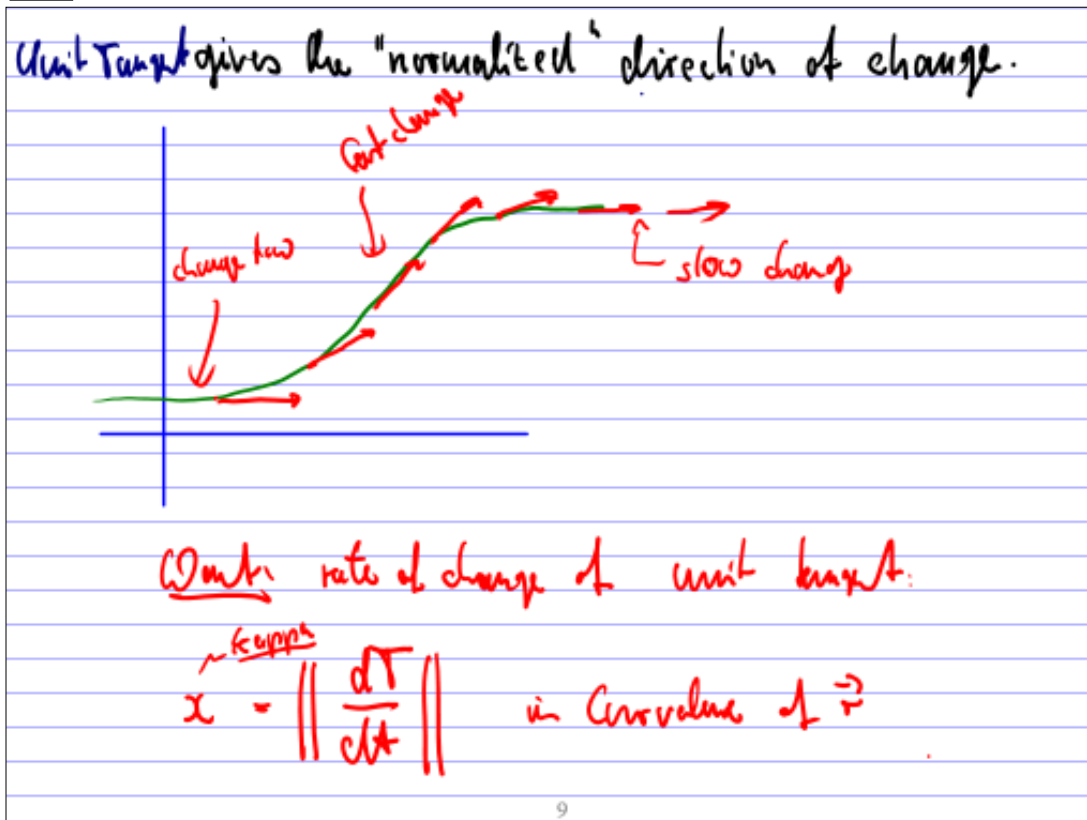 Unit Tangent gives the "normalized" direction of change.
fast change
change low
slow change
Want: rate of change of unit tangent:
kappa
ϰ = || dT/dt || is Curvature of r⃗
9